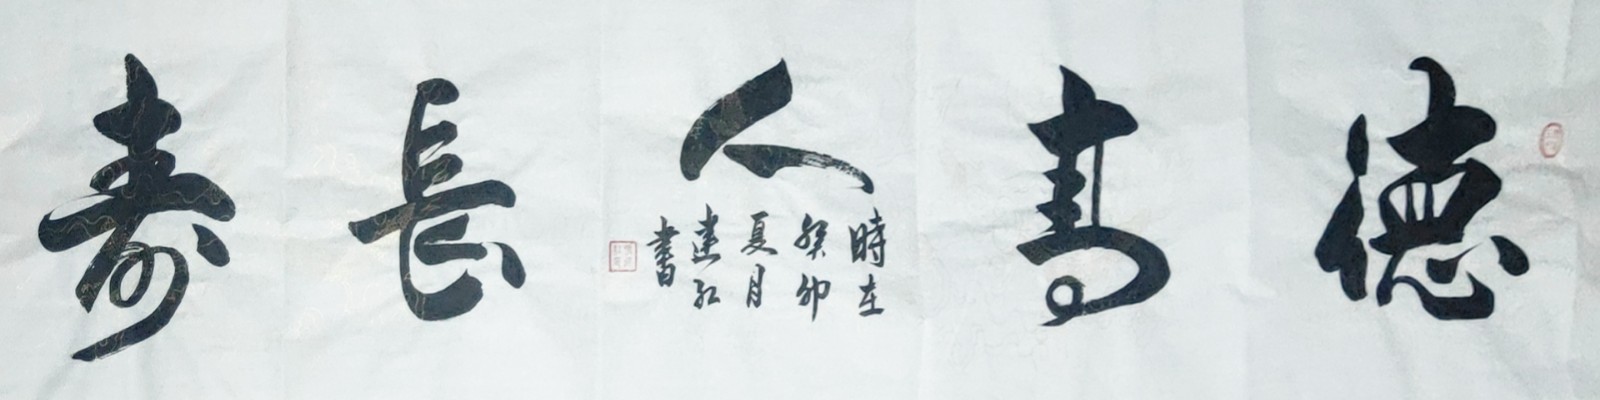 德高人長寿
時在
癸卯
夏月
建红
書